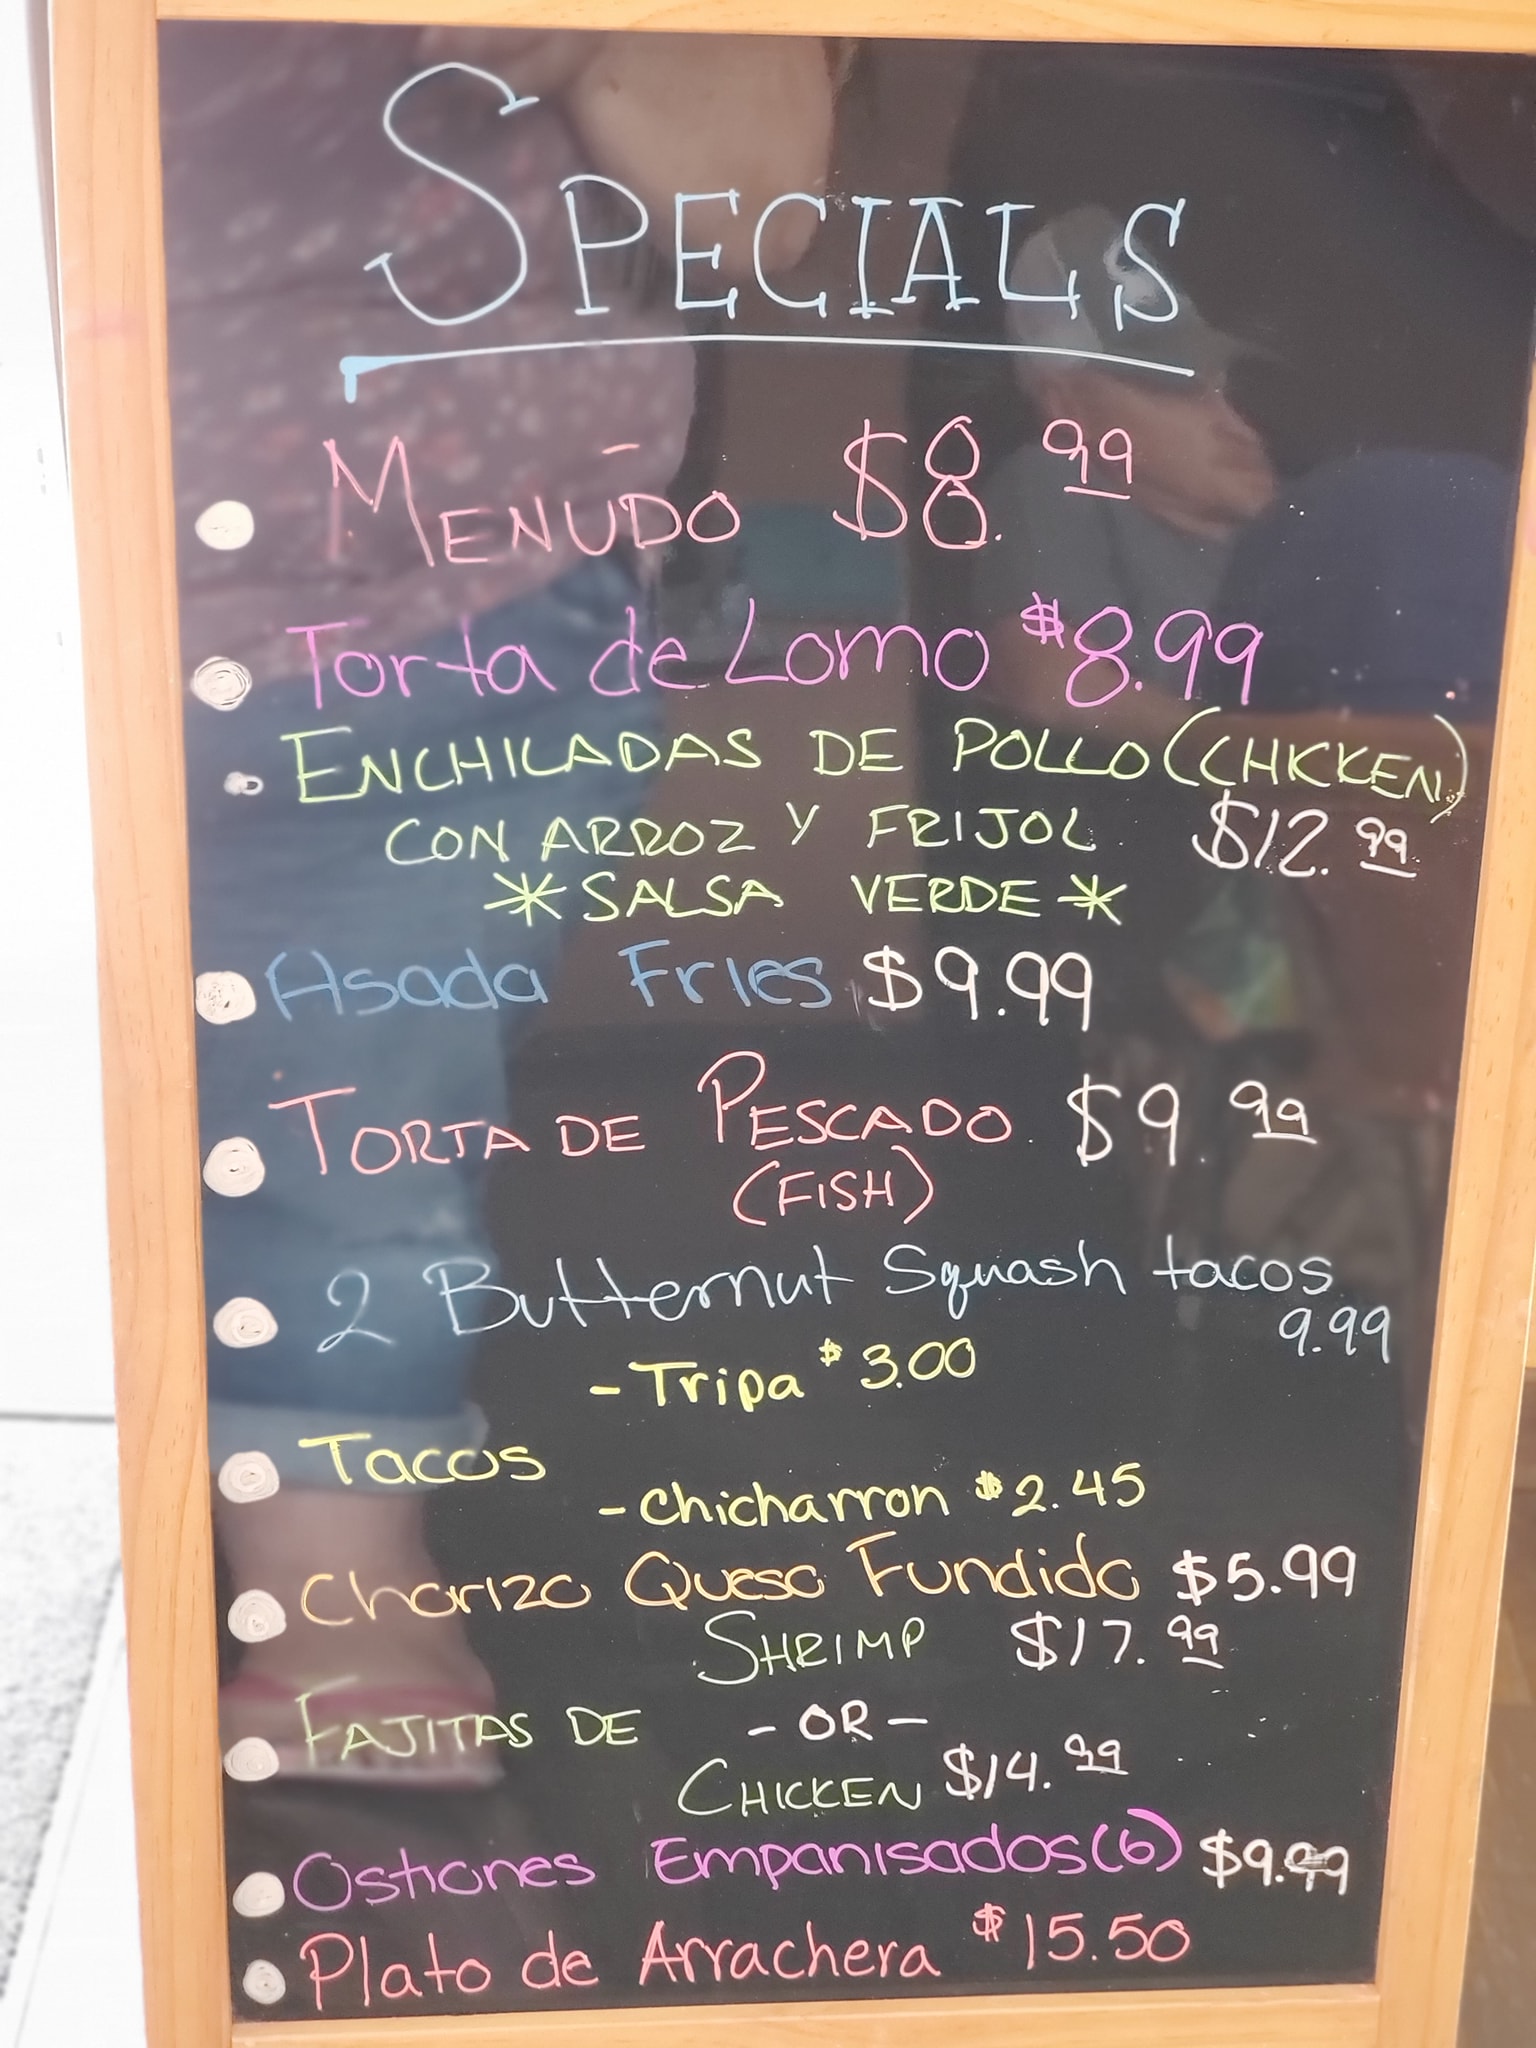 SPECIALS
MENUDO $8.99
Torta de Lomo $8.99
ENCHILADAS DE POLLO (CHICKEN)
CON ARROZ Y FRIJOL $12.99
*SALSA VERDE*
Asada Fries $9.99
TORTA DE PESCADO $9.99
(FISH)
2 Butternut Squash tacos
9.99
- Tripa $3.00
Tacos
- Chicharron $2.45
Chorizo Queso Fundido $5.99
SHRIMP $17.99
FAJITAS DE - OR -
CHICKEN $14.99
Ostiones Empanisados (6) $9.99
Plato de Arrachera $15.50